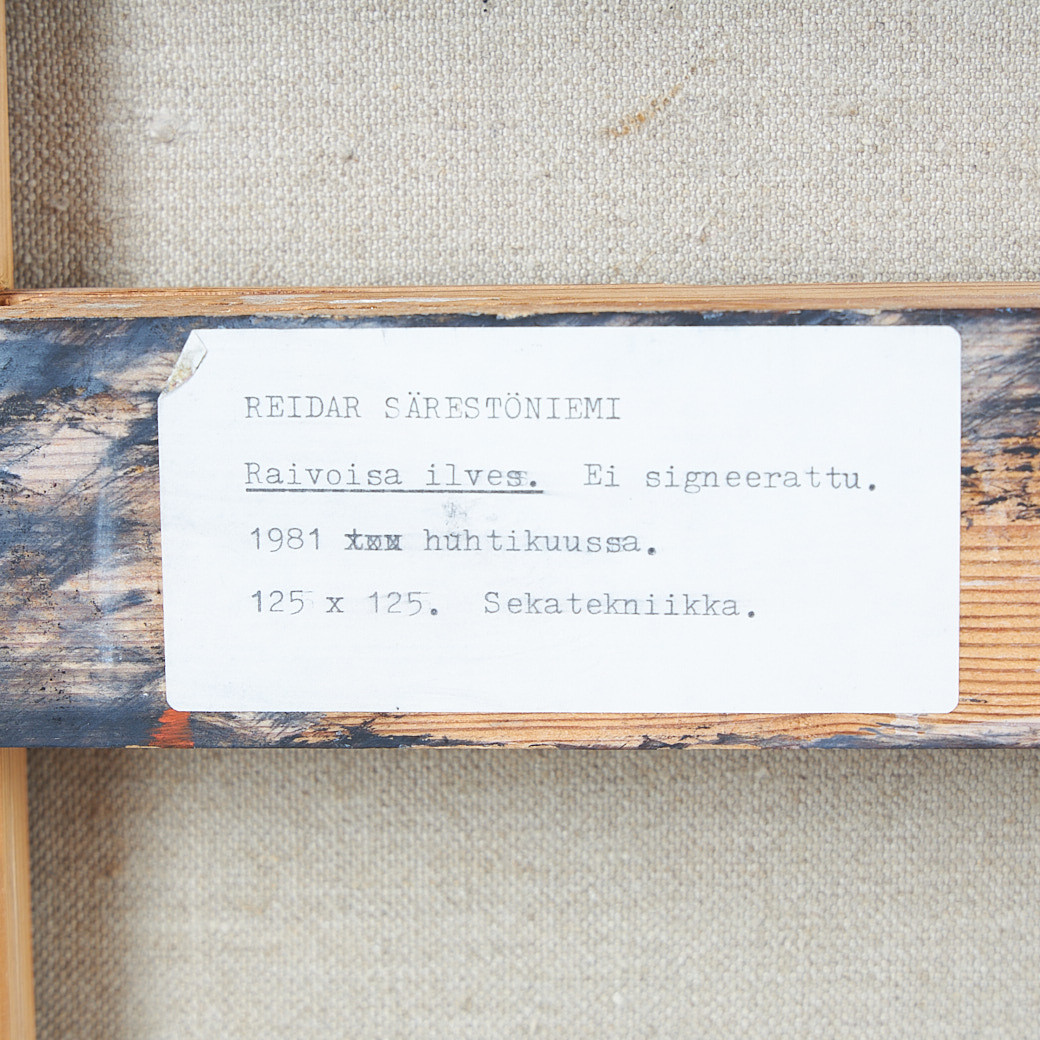 REIDAR SÄRESTÖNIEMI
Raivoisa ilves. Ei signeerattu.
1981 huhtikuussa.
125 x 125. Sekatekniikka.